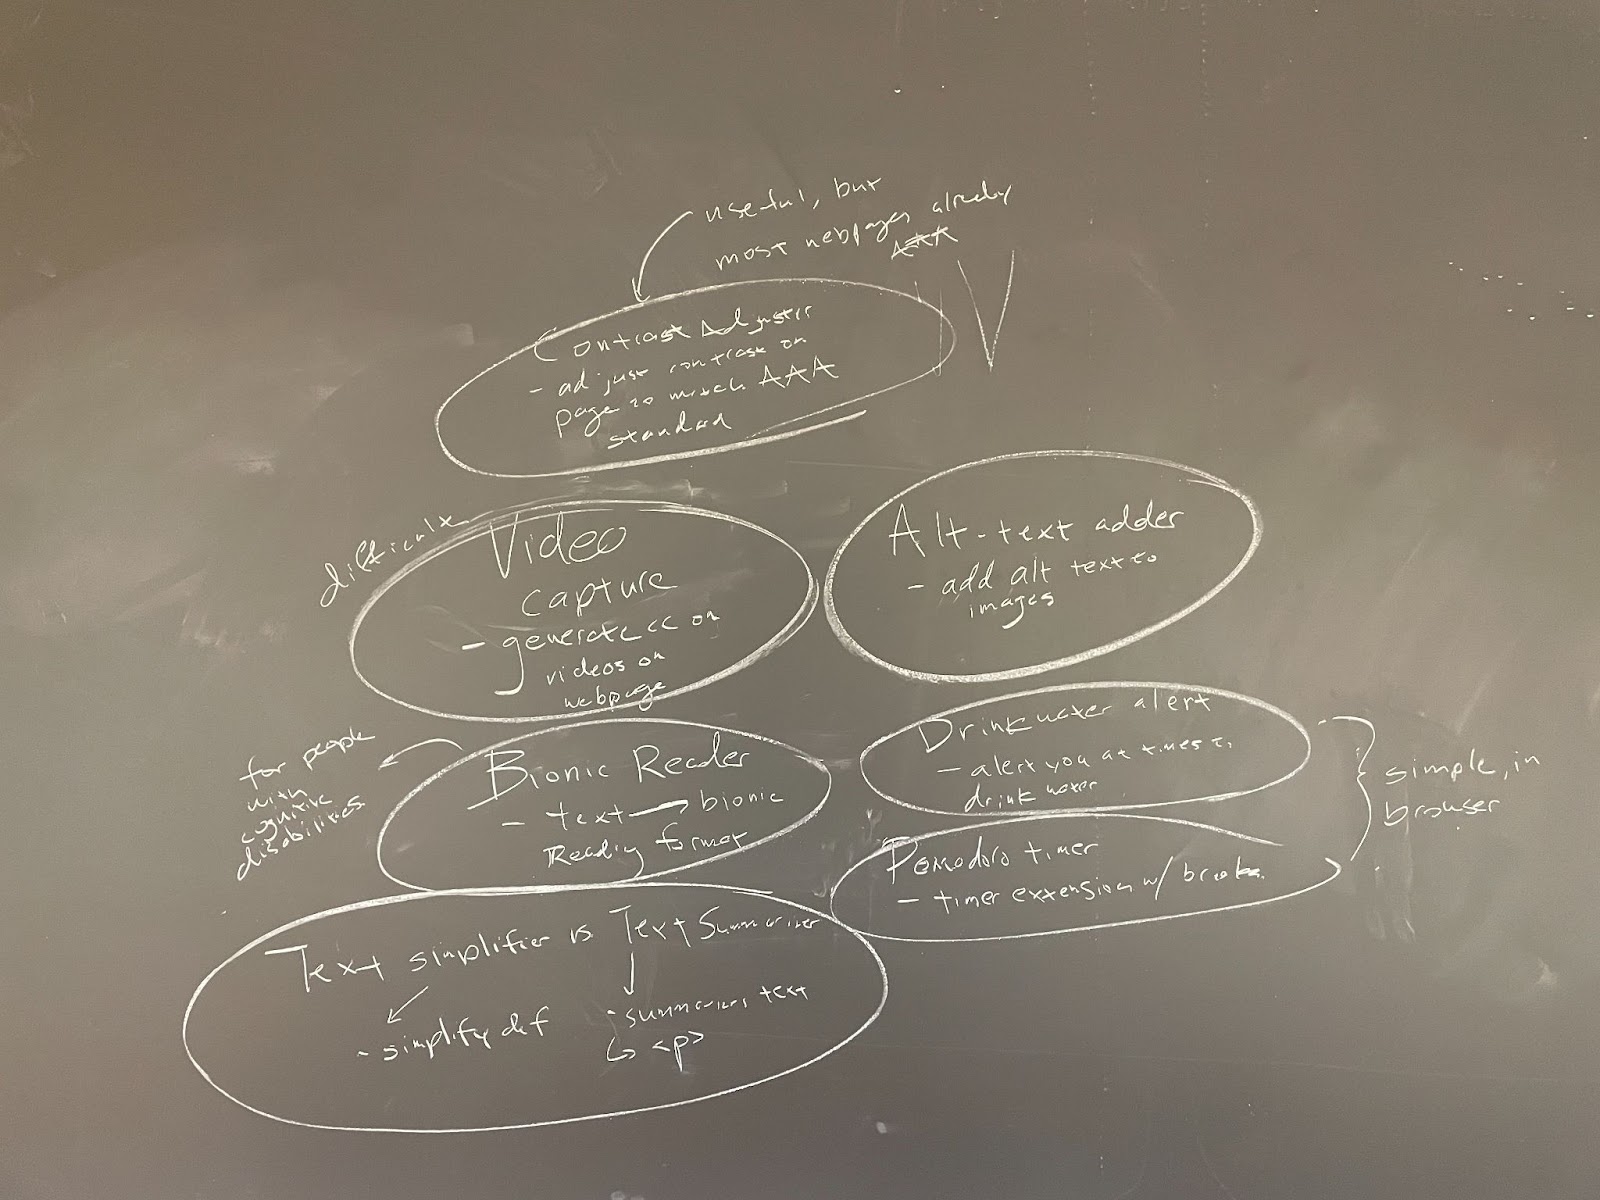 useful, but
most webpages already
AAA
Contrast Adjuster
- adjust contrast on
page to match AAA
standard
difficult
Video
capture
- generate cc on
videos on
webpage
Alt-text adder
- add alt text to
images
for people
with
cognitive
disabilities
Bionic Reader
- text → bionic
Reading format
Drink water alert
- alert you at times to
drink water
simple, in
browser
Pomodoro timer
- timer extension w/ breaks
Text simplifier vs Text Summarizer
- simplify def
- summarizes text
↳ <p>